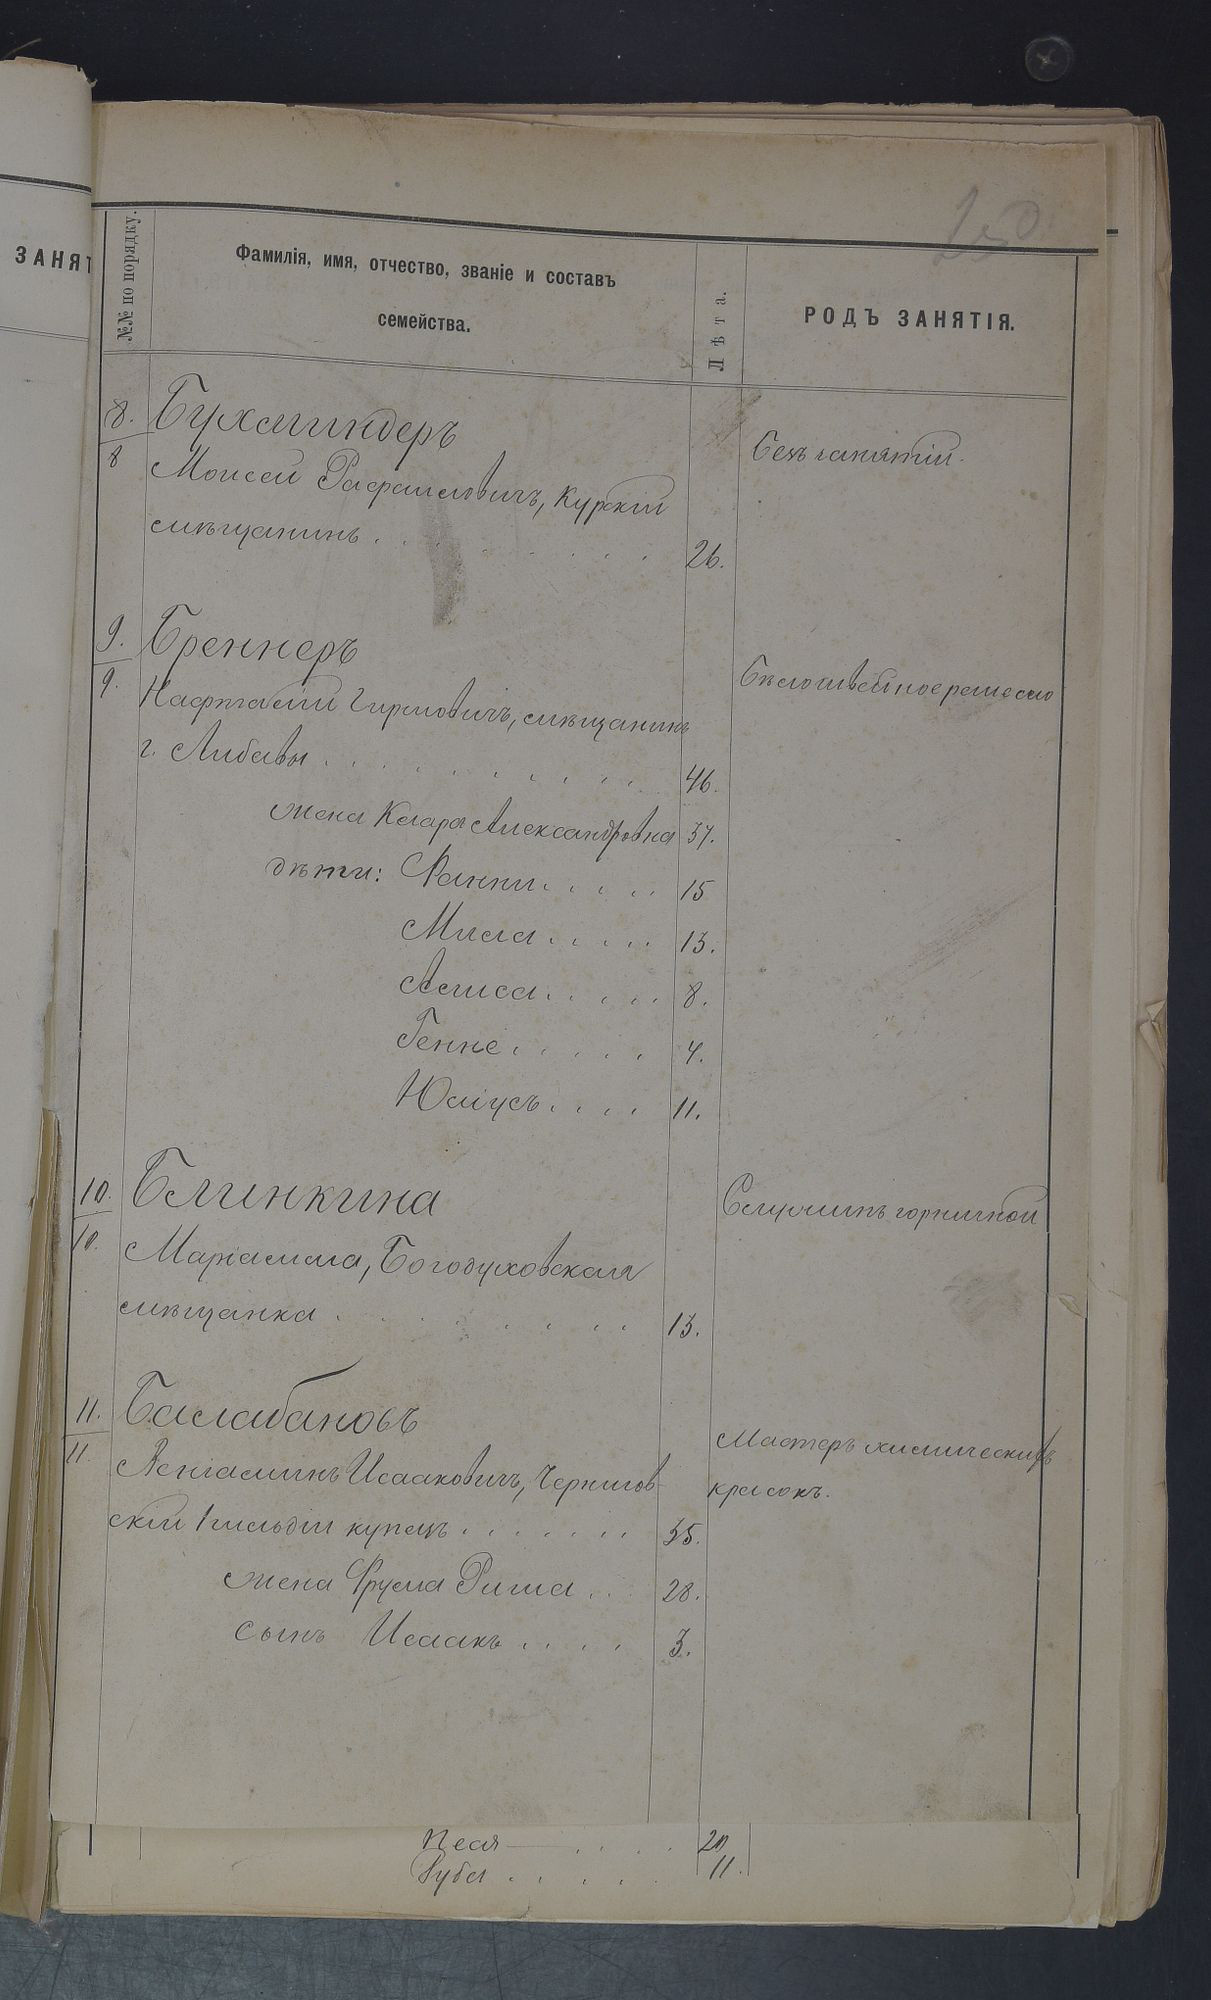 ЗАНЯТ
250
№№ по порядку.
Фамилія, имя, отчество, званіе и составъ
семейства.
Лѣта.
РОДЪ ЗАНЯТІЯ.
8. Бухминдеръ
8 Моисей Рафаиловичъ, Курскій
мѣщанинъ . . . . . . . . 26.
Безъ занятій.
9. Бреннеръ
9. Нафталій Гиршовичъ, мѣщанинъ
г. Либавы . . . . . . . . . . 46.
Бѣлошвейное ремесло
жена Клара Александровна 37.
дѣти: Фанни . . . . . 15
Мила . . . . . 13.
Алиса . . . . . 8.
Генне . . . . . 4.
Юліусъ . . . . 11.
10. Блинкина
10. Маріамма, Богодуховская
мѣщанка . . . . . . . . 13.
Служитъ горничной
11. Балабановъ
11. Веніаминъ Исааковичъ, Чернигов-
скій 1 гильдіи купецъ . . . . . . . 35.
Мастеръ химическихъ
красокъ.
жена Фрума Риша . . 28.
сынъ Исаакъ . . . . 3.
Песя . . . . 20
11.